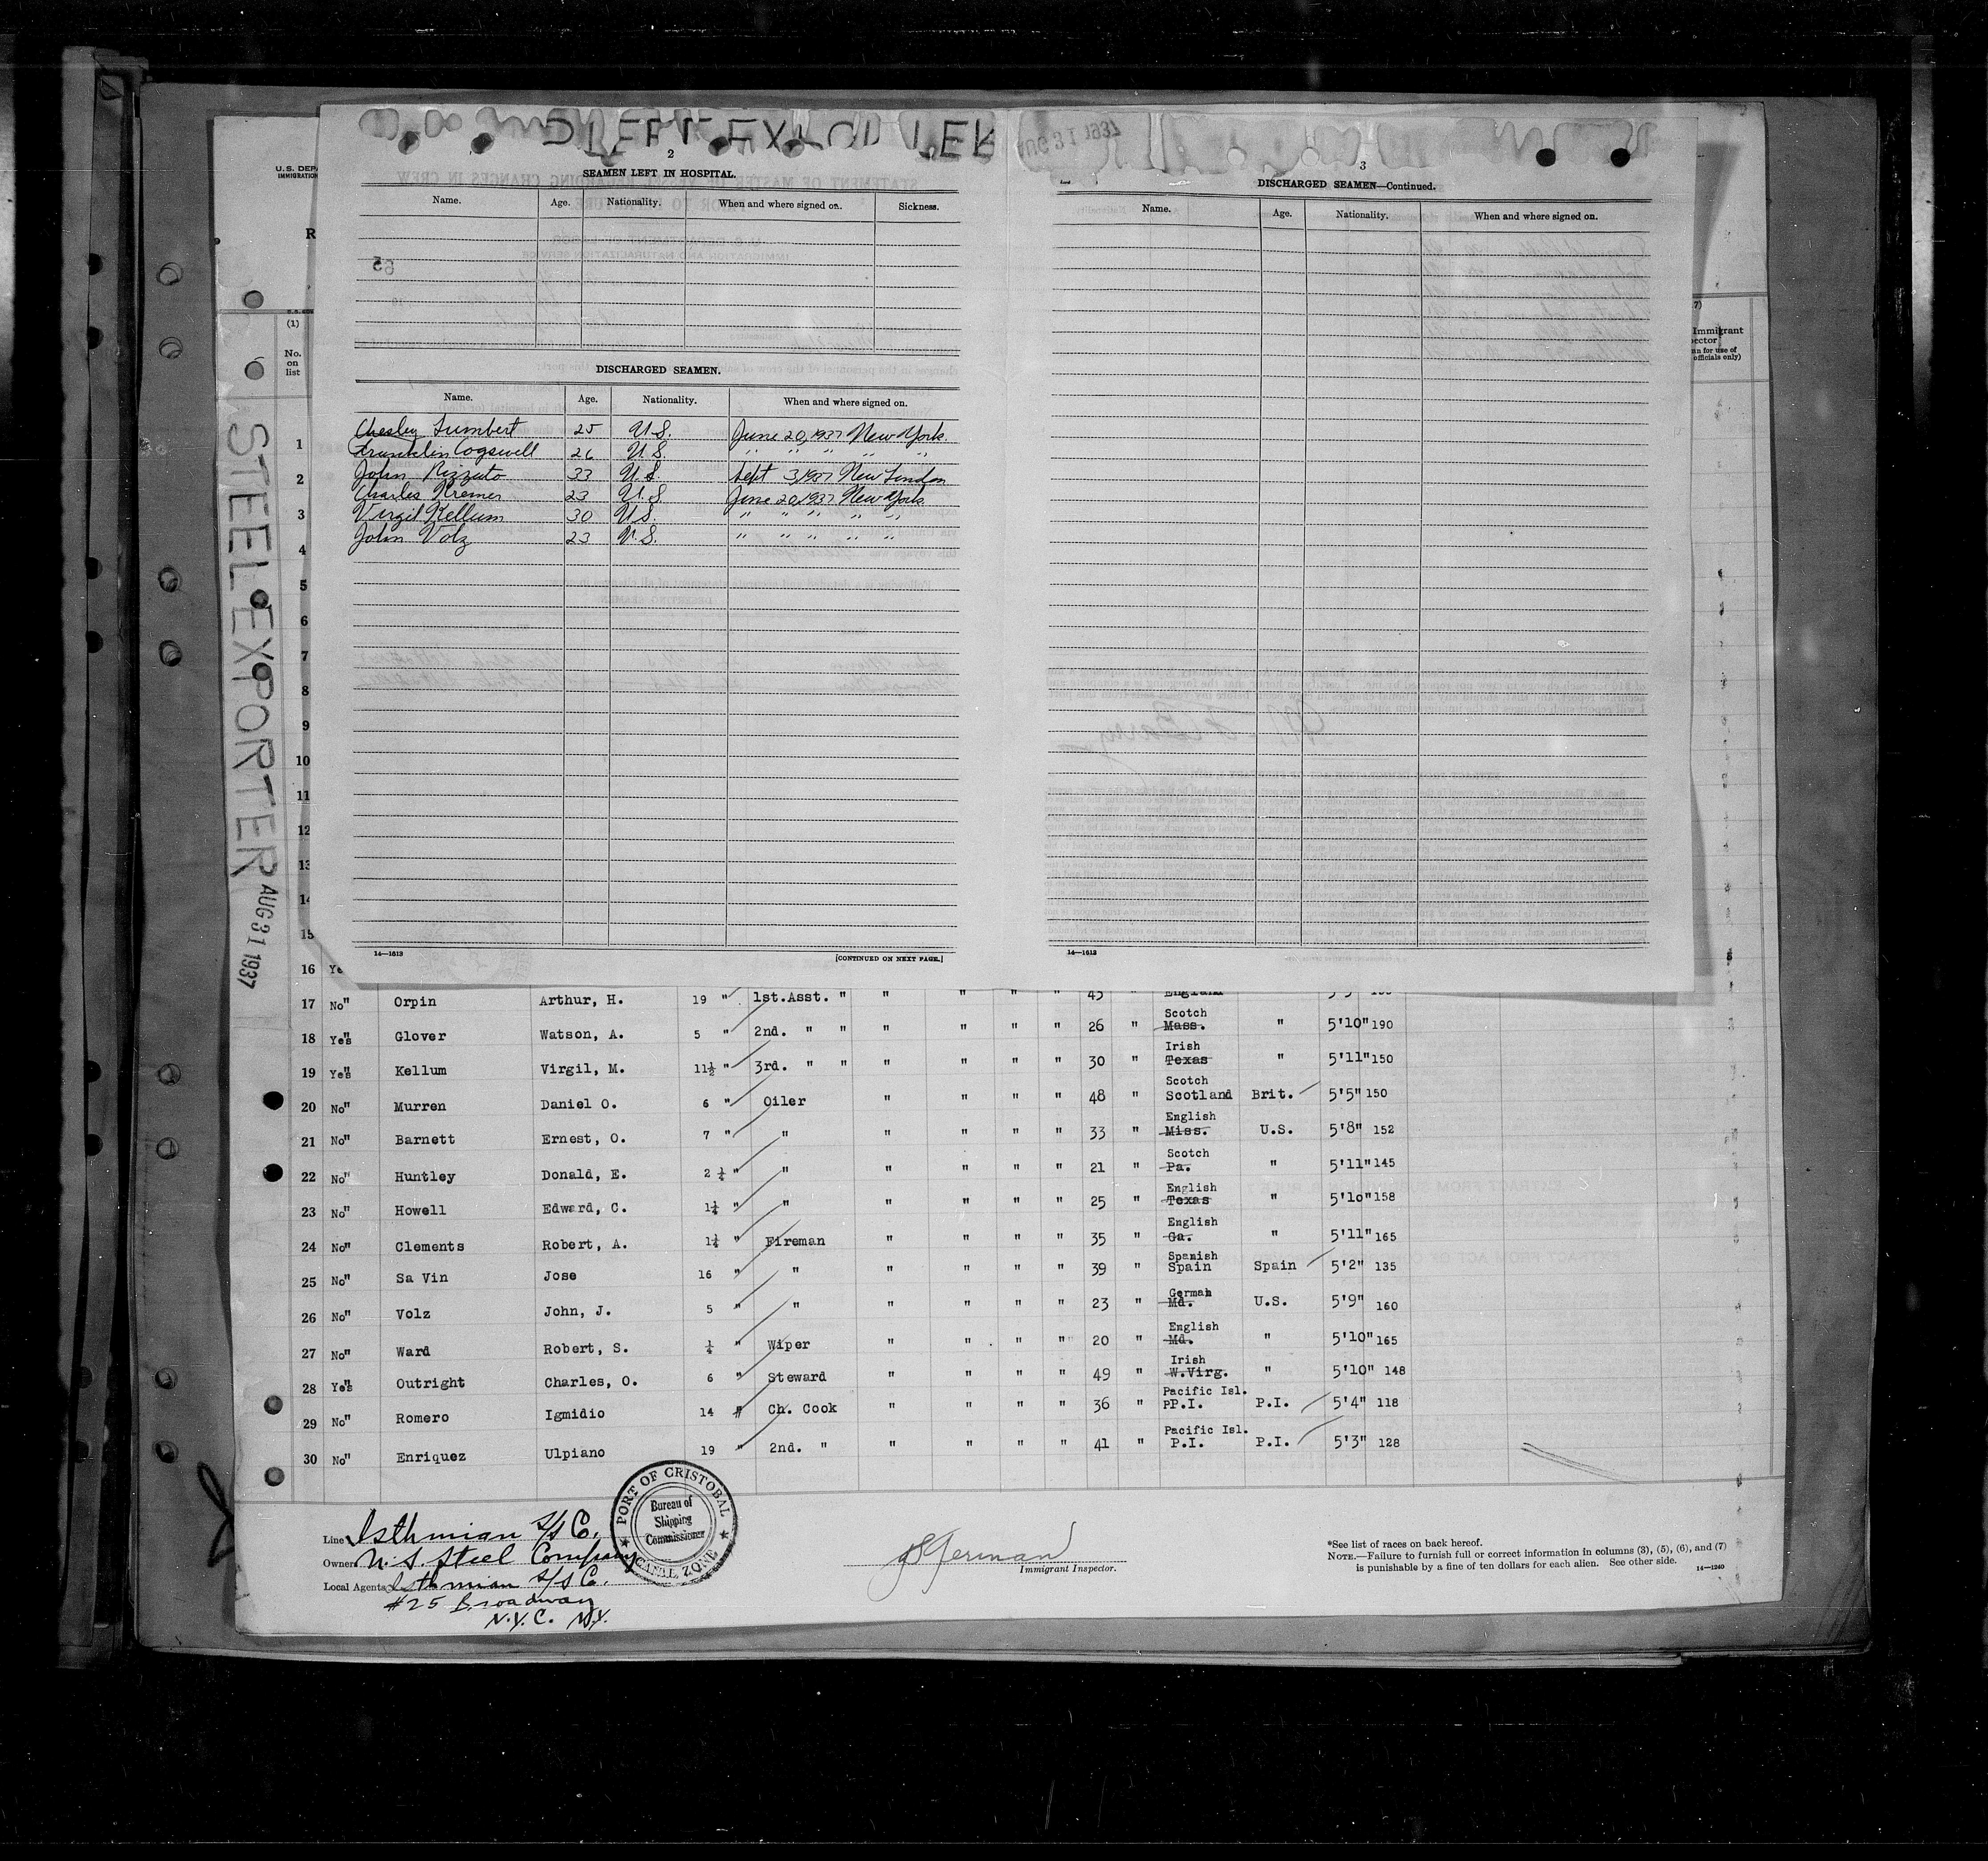 STEEL EXPORTER
AUG 31 1937
2
SEAMEN LEFT IN HOSPITAL.
Name. Age. Nationality. When and where signed on. Sickness.
DISCHARGED SEAMEN.
Name. Age. Nationality. When and where signed on.
Chesley Lumbert 25 U.S. June 20, 1937 New York.
Franklin Cogswell 26 U.S. " " " " "
John Rizzuto 33 U.S. Sept 3, 1937 New London
Charles Kremer 23 U.S. June 20, 1937 New York.
Virgil Kellum 30 U.S. " " " " "
John Volz 23 U.S. " " " " "
14—1613
[CONTINUED ON NEXT PAGE.]
3
DISCHARGED SEAMEN—Continued.
Name. Age. Nationality. When and where signed on.
14—1613
U.S. DEPA
IMMIGRATION
R
(1)
No.
on
list
1
2
3
4
5
6
7
8
9
10
11
12
13
14
15
16 Ye
7)
Immigrant
pector
officials only)
STEEL EXPORTER AUG 31 1937
17 No" Orpin Arthur, H. 19 " 1st.Asst. " " " " " 45 " England
18 Yes" Glover Watson, A. 5 " 2nd. " " " " " " 26 " Scotch Mass. " 5'10" 190
19 Yes" Kellum Virgil, M. 11½ " 3rd. " " " " " " 30 " Irish Texas " 5'11" 150
20 No" Murren Daniel O. 6 " Oiler " " " " 48 " Scotch Scotland Brit. 5'5" 150
21 No" Barnett Ernest, O. 7 " " " " " " 33 " English Miss. U.S. 5'8" 152
22 No" Huntley Donald, E. 2¼ " " " " " " 21 " Scotch Pa. " 5'11" 145
23 No" Howell Edward, C. 1¼ " " " " " " 25 " English Texas " 5'10" 158
24 No" Clements Robert, A. 1¼ " Fireman " " " " 35 " English Ga. " 5'11" 165
25 No" Sa Vin Jose 16 " " " " " " 39 " Spanish Spain Spain 5'2" 135
26 No" Volz John, J. 5 " " " " " " 23 " German Md. U.S. 5'9" 160
27 No" Ward Robert, S. ¼ " Wiper " " " " 20 " English Md. " 5'10" 165
28 Yes" Outright Charles, O. 6 " Steward " " " " 49 " Irish W.Virg. " 5'10" 148
29 No" Romero Igmidio 14 " Ch. Cook " " " " 36 " Pacific Isl. PP.I. P.I. 5'4" 118
30 No" Enriquez Ulpiano 19 " 2nd. " " " " " 41 " Pacific Isl. P.I. P.I. 5'3" 128
Line Isthmian S/S Co.
Owner U.S. Steel Company
Local Agents Isthmian S/S Co.
#25 Broadway
N.Y.C. N.Y.
PORT OF CRISTOBAL
Bureau of
Shipping
Commissioner
CANAL ZONE
Immigrant Inspector.
*See list of races on back hereof.
NOTE.—Failure to furnish full or correct information in columns (3), (5), (6), and (7)
is punishable by a fine of ten dollars for each alien. See other side.
14—1240